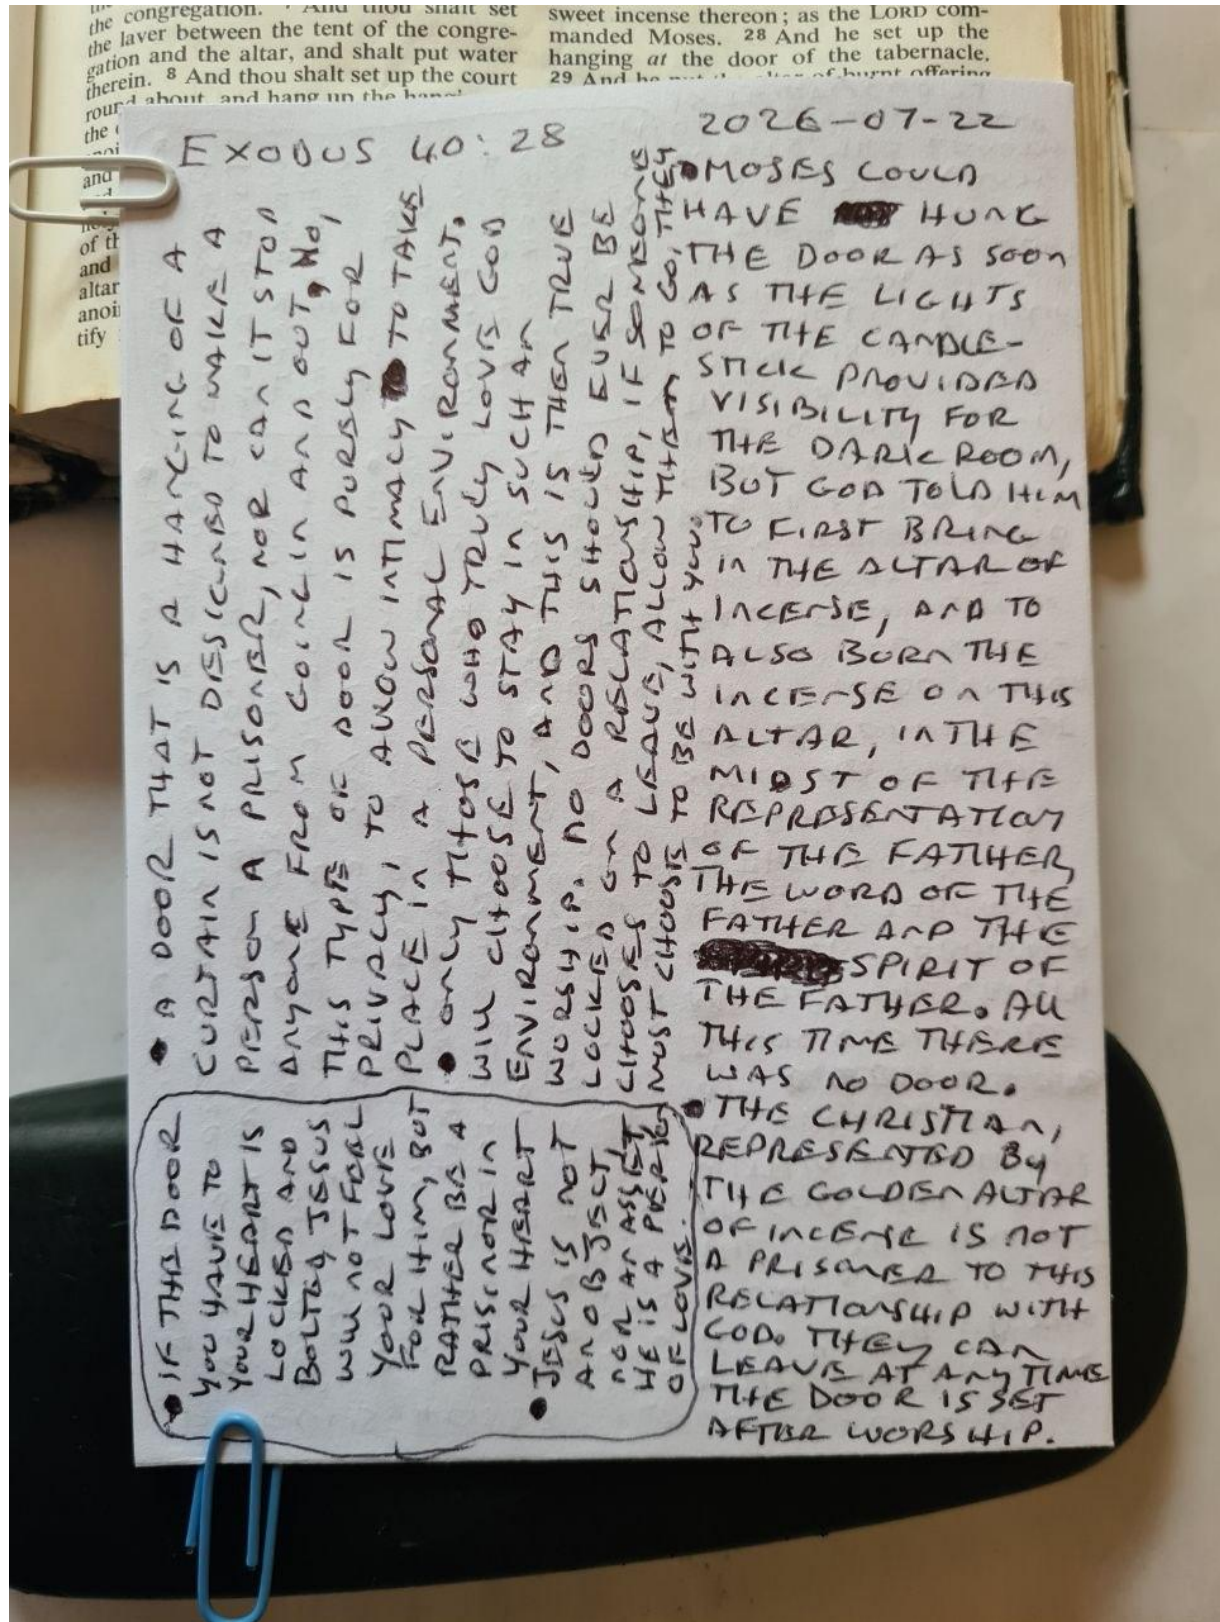 the congregation. 7 And thou shalt set
the laver between the tent of the congre-
gation and the altar, and shalt put water
therein. 8 And thou shalt set up the court
round about, and hang up the
the
and
of th
and
altar
anoi
tify
sweet incense thereon; as the LORD com-
manded Moses. 28 And he set up the
hanging at the door of the tabernacle.
29 And he put the altar of burnt offering
EXODUS 40:28
2026-07-22
• MOSES COULD
HAVE HUNG
THE DOOR AS SOON
AS THE LIGHTS
OF THE CANDLE-
STICK PROVIDED
VISIBILITY FOR
THE DARK ROOM,
BUT GOD TOLD HIM
TO FIRST BRING
IN THE ALTAR OF
INCENSE, AND TO
ALSO BURN THE
INCENSE ON THIS
ALTAR, IN THE
MIDST OF THE
REPRESENTATION
OF THE FATHER,
THE WORD OF THE
FATHER AND THE
SPIRIT OF
THE FATHER. ALL
THIS TIME THERE
WAS NO DOOR.
• THE CHRISTIAN,
REPRESENTED BY
THE GOLDEN ALTAR
OF INCENSE IS NOT
A PRISONER TO THIS
RELATIONSHIP WITH
GOD. THEY CAN
LEAVE AT ANY TIME
THE DOOR IS SET
AFTER WORSHIP.
• A DOOR THAT IS A HANGING OF A
CURTAIN IS NOT DESIGNED TO MAKE A
PERSON A PRISONER, NOR CAN IT STOP
ANYONE FROM GOING IN AND OUT, NO,
THIS TYPE OF DOOR IS PURELY FOR
PRIVACY, TO ALLOW INTIMACY TO TAKE
PLACE IN A PERSONAL ENVIRONMENT.
• ONLY THOSE WHO TRULY LOVE GOD
WILL CHOOSE TO STAY IN SUCH AN
ENVIRONMENT, AND THIS IS THEN TRUE
WORSHIP. NO DOORS SHOULD EVER BE
LOCKED ON A RELATIONSHIP, IF SOMEONE
CHOOSES TO LEAVE, ALLOW THEM TO GO, THEY
MUST CHOOSE TO BE WITH YOU.
• IF THE DOOR
YOU HAVE TO
YOUR HEART IS
LOCKED AND
BOLTED, JESUS
WILL NOT FEEL
YOUR LOVE
FOR HIM, BUT
RATHER BE A
PRISINOR IN
YOUR HEART
• JESUS IS NOT
AN OBJECT,
NOR AN ASSET,
HE IS A PERSON
OF LOVE.